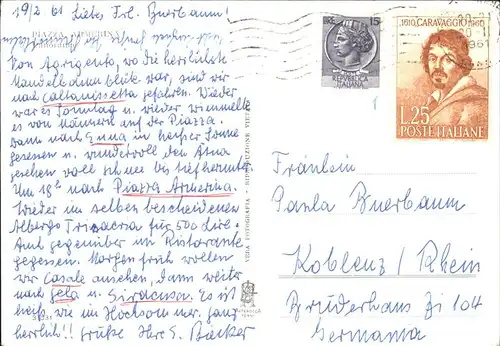 19/2 61 Liebes Frl. Buerbaum!
PIAZZA ARMERINA
Von Agrigento, wo die herrlichste
Mandelbaumblüte war, sind wir
nach Caltanissetta gefahren. Wieder
war es Sonntag u. wieder wimmelte
es von Männern auf der Piazza.
Dann nach Enna in heißer Sonne
gesessen u. wundervoll den Ätna
gesehen voll Schnee bis tief herunter
Um 18h nach Piazza Armerina.
Wieder im selben bescheidenen
Albergo Trinacria für 500 Lire.
Gut gegenüber im Ristorante
gegessen. Morgen früh wollen
wir Casale ansehen, dann weiter
nach Gela u. Siracusa. Es ist
heiß wie im Hochsommer, ganz
herrlich!! Grüße Ihre E. Bäcker
VERA FOTOGRAFIA - RIPRODUZIONE VIETATA
LIRE 15
REPVBBLICA
ITALIANA
1610 CARAVAGGIO 1960
1961
L.25
POSTE ITALIANE
Fräulein
Paula Buerbaum
Koblenz / Rhein
Brüderhaus Zi 104
Germania